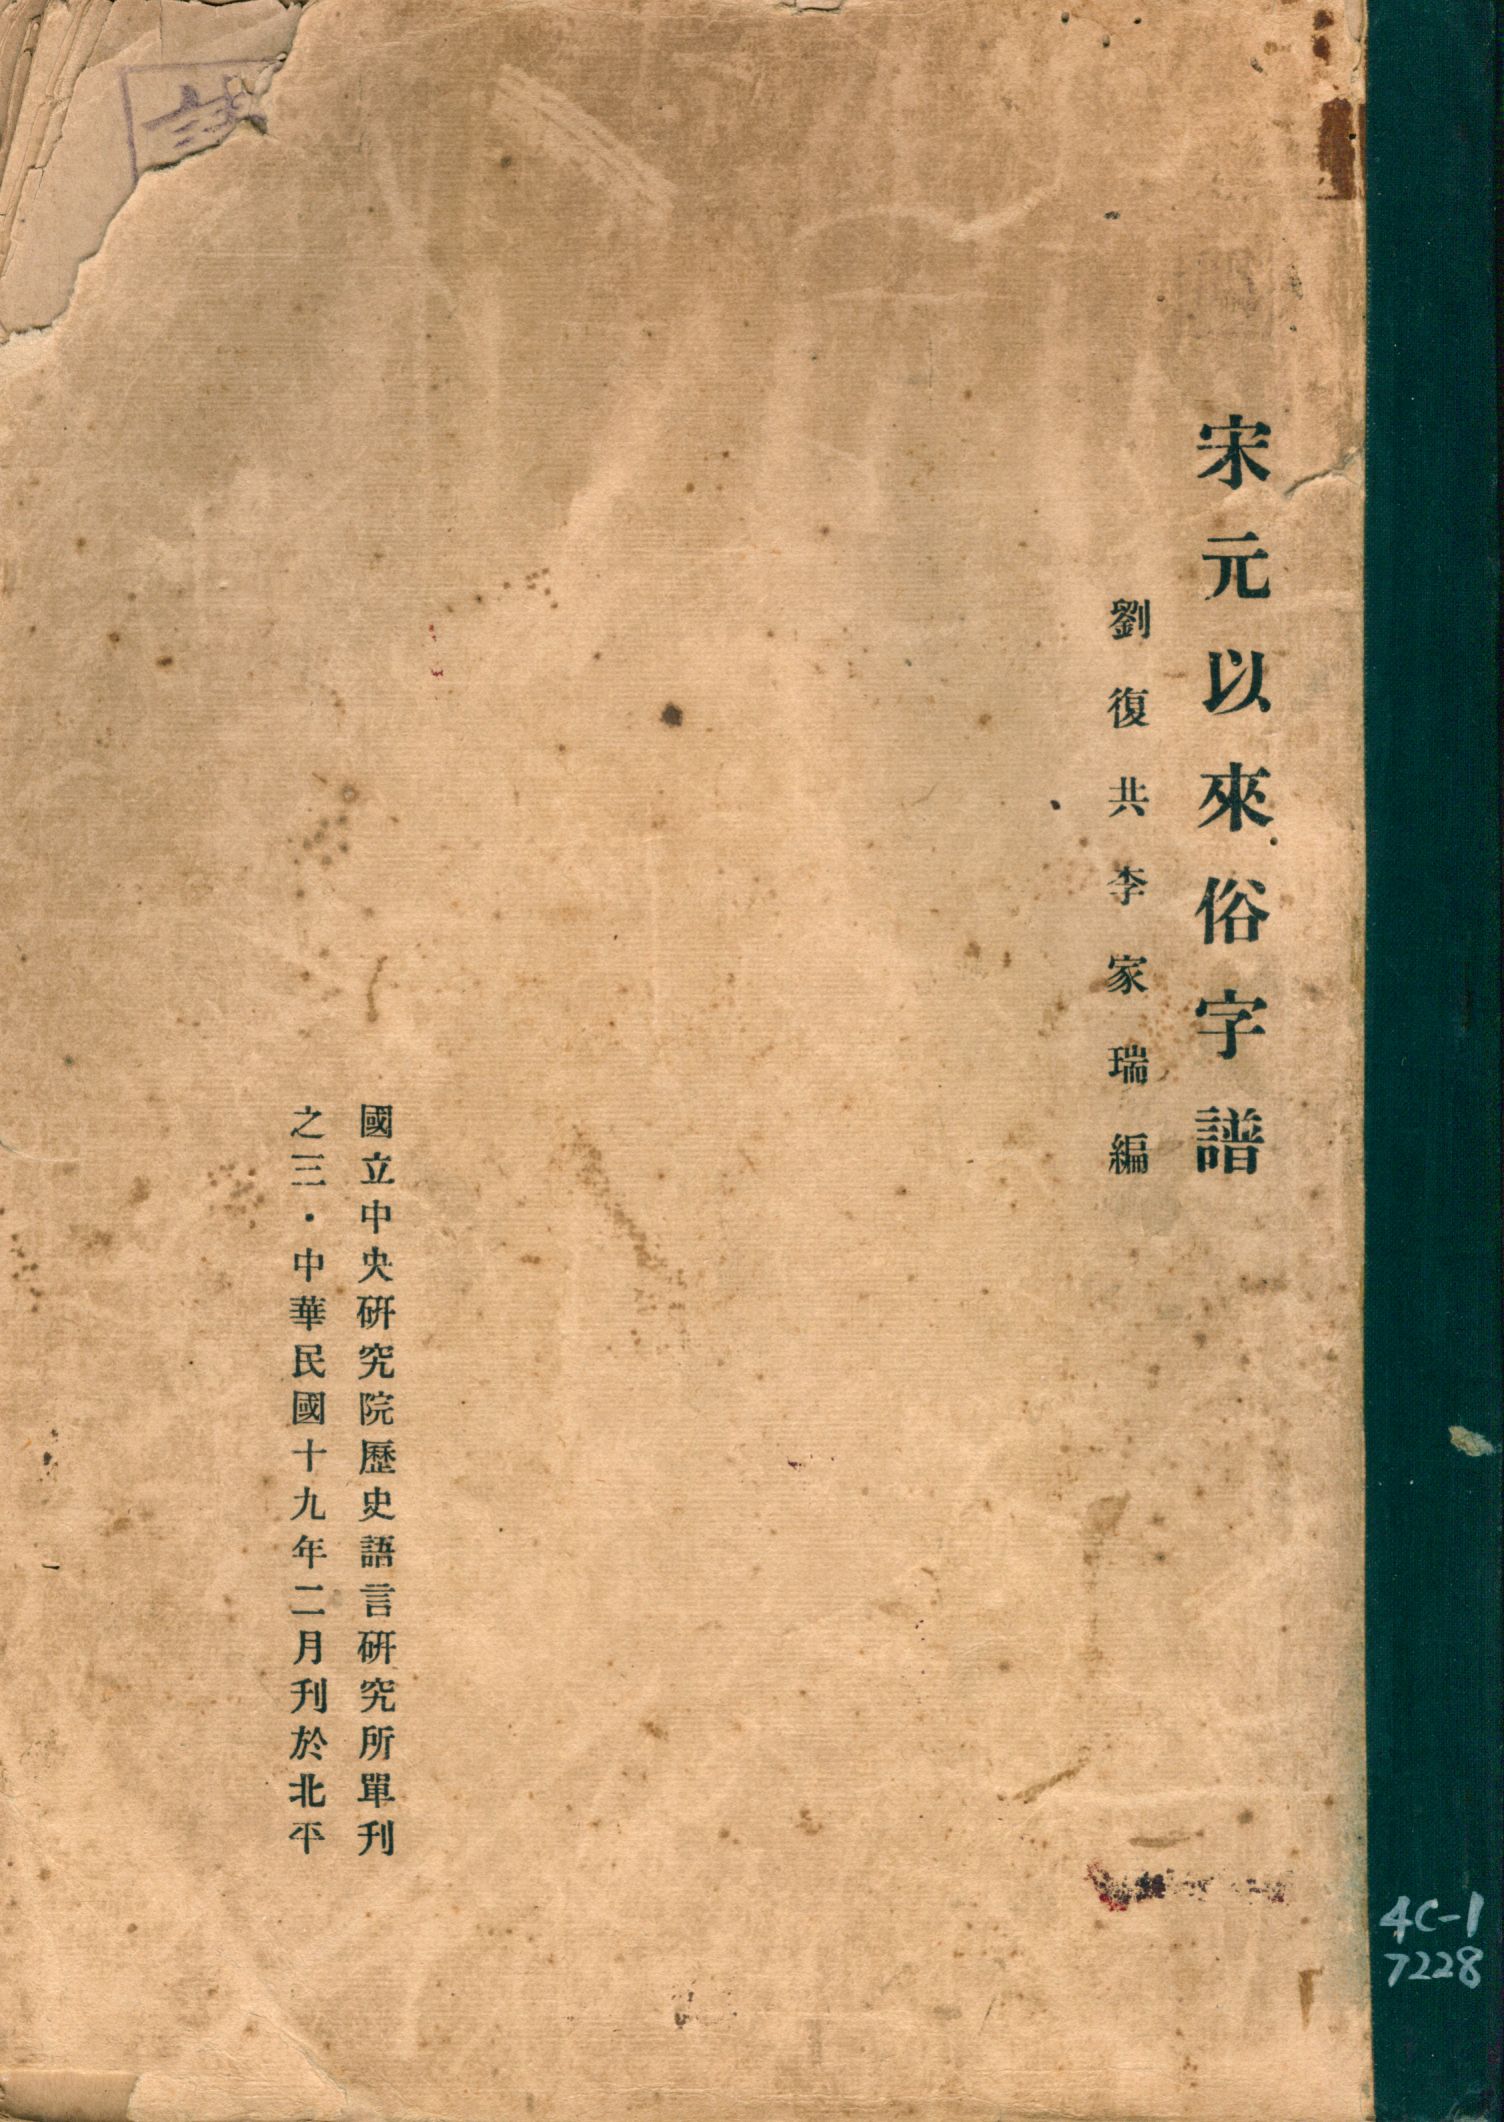 宋元以來俗字譜
劉復共李家瑞編
國立中央硏究院歷史語言硏究所單刊
之三・中華民國十九年二月刊於北平
4C-1
7228